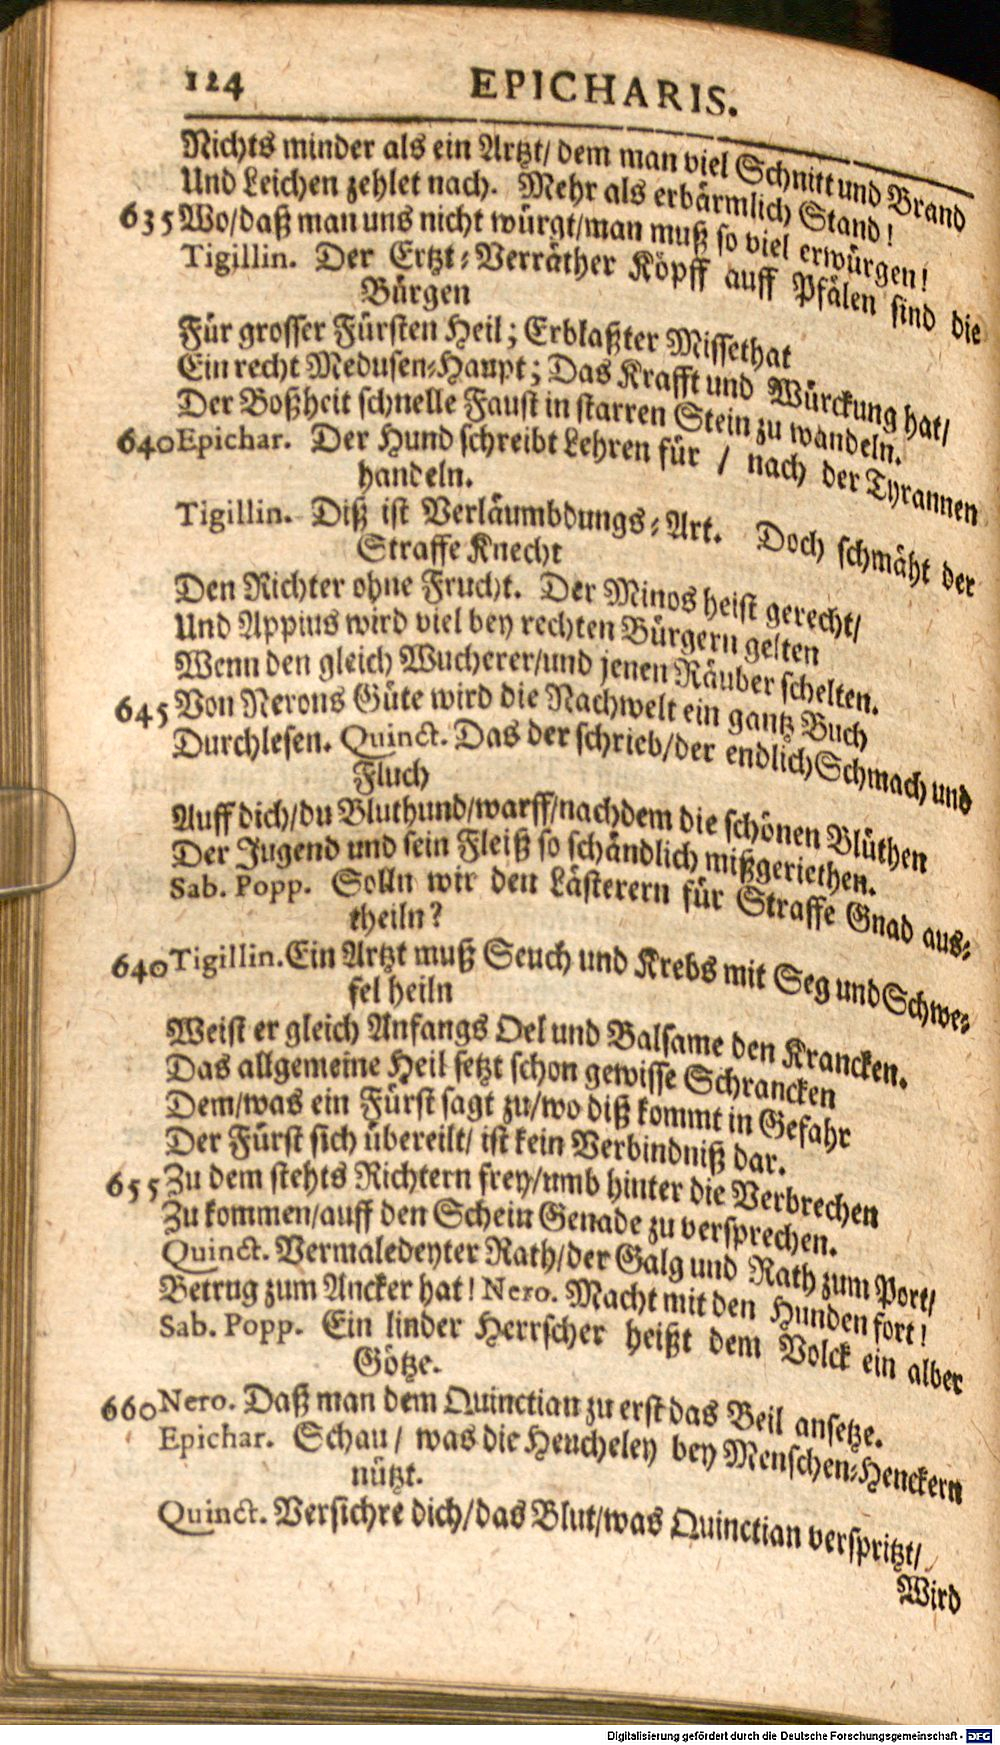 124 EPICHARIS.
Nichts minder als ein Artzt/ dem man viel Schnitt und Brand
Und Leichen zehlet nach. Mehr als erbärmlich Stand!
635 Wo/daß man uns nicht würgt/man muß so viel erwürgen!
Tigillin. Der Ertzt-Verräther Köpff auff Pfälen sind die
Bürgen
Für grosser Fürsten Heil; Erblaßter Missethat
Ein recht Medusen-Haupt; Das Krafft und Würckung hat/
Der Boßheit schnelle Faust in starren Stein zu wandeln.
640 Epichar. Der Hund schreibt Lehren für / nach der Tyrannen
handeln.
Tigillin. Diß ist Verläumbdungs-Art. Doch schmäht der
Straffe Knecht
Den Richter ohne Frucht. Der Minos heist gerecht/
Und Appius wird viel bey rechten Bürgern gelten
Wenn den gleich Wucherer/und jenen Räuber schelten.
645 Von Nerons Güte wird die Nachwelt ein gantz Buch
Durchlesen. Quinct. Das der schrieb/der endlich Schmach und
Fluch
Auff dich/du Bluthund/warff/nachdem die schönen Blüthen
Der Jugend und sein Fleiß so schändlich mißgeriethen.
Sab. Popp. Solln wir den Lästerern für Straffe Gnad aus-
theiln?
640 Tigillin. Ein Artzt muß Seuch und Krebs mit Seg und Schwe-
fel heiln
Weist er gleich Anfangs Oel und Balsame den Krancken.
Das allgemeine Heil setzt schon gewisse Schrancken
Dem/was ein Fürst sagt zu/wo diß kommt in Gefahr
Der Fürst sich übereilt/ ist kein Verbindniß dar.
655 Zu dem stehts Richtern frey/umb hinter die Verbrechen
Zu kommen/auff den Schein Genade zu versprechen.
Quinct. Vermaledeyter Rath/der Galg und Rath zum Port/
Betrug zum Ancker hat! Nero. Macht mit den Hunden fort!
Sab. Popp. Ein linder Herrscher heißt dem Volck ein alber
Götze.
660 Nero. Daß man dem Quinctian zu erst das Beil ansetze.
Epichar. Schau / was die Heucheley bey Menschen-Henckern
nützt.
Quinct. Versichre dich/das Blut/was Quinctian verspritzt/
Wird
Digitalisierung gefördert durch die Deutsche Forschungsgemeinschaft - DFG